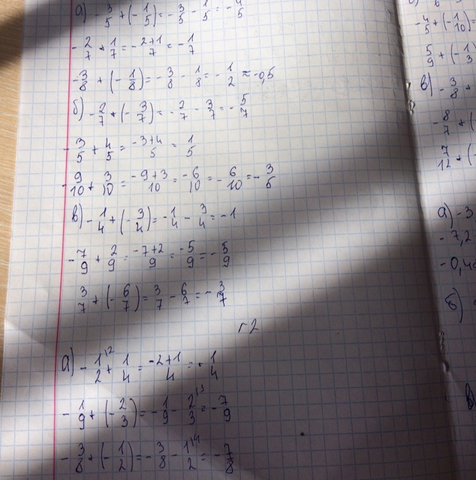 а) -3/5 + (-1/5) = -3/5 - 1/5 = -4/5
-2/7 + 1/7 = -2+1/7 = -1/7
-3/8 + (-1/8) = -3/8 - 1/8 = -1/2 = -0,5
б) -2/7 + (-3/7) = -2/7 - 3/7 = -5/7
-3/5 + 4/5 = -3+4/5 = 1/5
-9/10 + 3/10 = -9+3/10 = -6/10 = -6/10 = -3/5
в) -1/4 + (-3/4) = -1/4 - 3/4 = -1
-7/9 + 2/9 = -7+2/9 = -5/9 = -5/9
3/7 + (-6/7) = 3/7 - 6/7 = -3/7
г2
а) -1/2 + 1/4 = -2+1/4 = -1/4
-1/9 + (-2/3) = -1/9 - 2/3 = -7/9
-3/8 + (-1/2) = -3/8 - 1/2 = -7/8
-4/5 + (-1/10)
5/9 + (-1/3
в) -3/8 +
-8/7 + (
7/12 + (
а) -3
-7,2
-0,4
б)